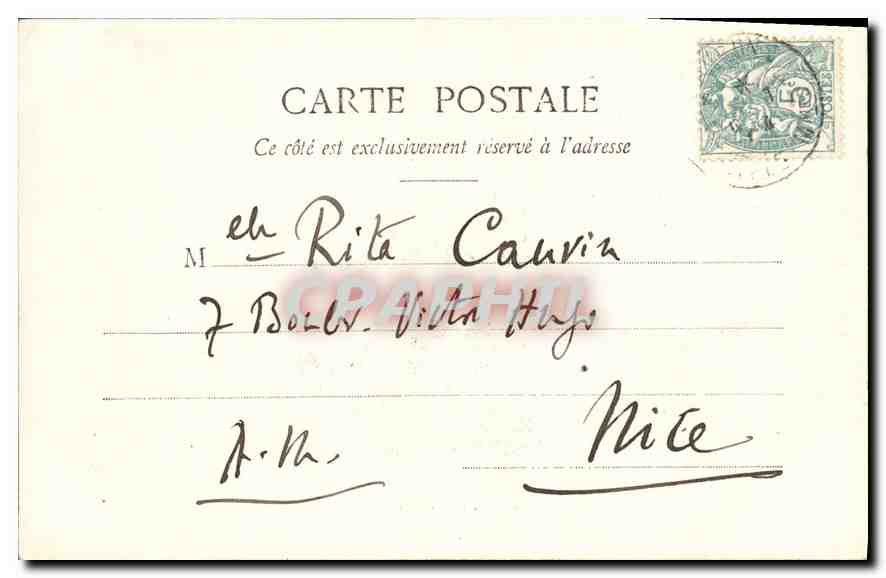 CARTE POSTALE
Ce côté est exclusivement réservé à l'adresse
5
POSTES
Melle Rita Cauvin
CPARHTI
7 Boulv. Victor Hugo
Nice
A.M.